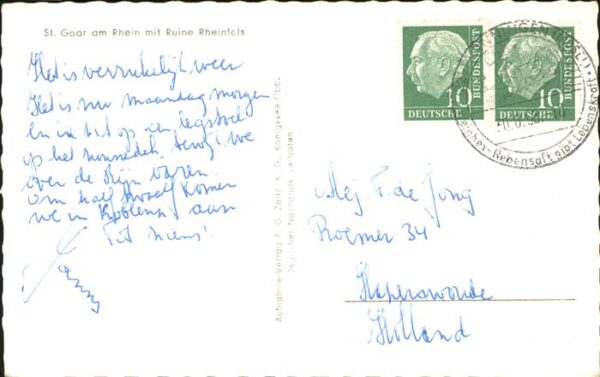 St. Goar am Rhein mit Ruine Rheinfels
Het is verrukkelijk weer
Het is nu maandag morgen
En ik zit op een legstoel
op het zonnedek terwijl we
over de Rijn varen
om half twaalf komen
we in Koblenz aan.
Tot ziens!
DEUTSCHE
BUNDESPOST
10
DEUTSCHE
BUNDESPOST
10
Rebensaft gibt Lebenskraft
Mej F. de Jong
Roemer 34
Hazerswoude
Holland